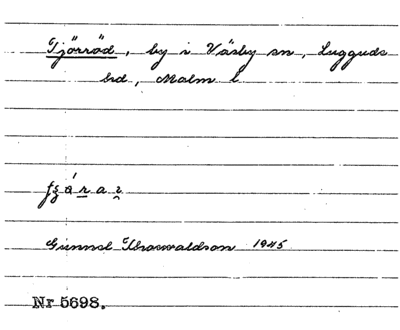 Tjörröd, by i Väsby sn, Luggude
hd, Malm l
Gunnel Thorwaldson 1945
Nr 5698.